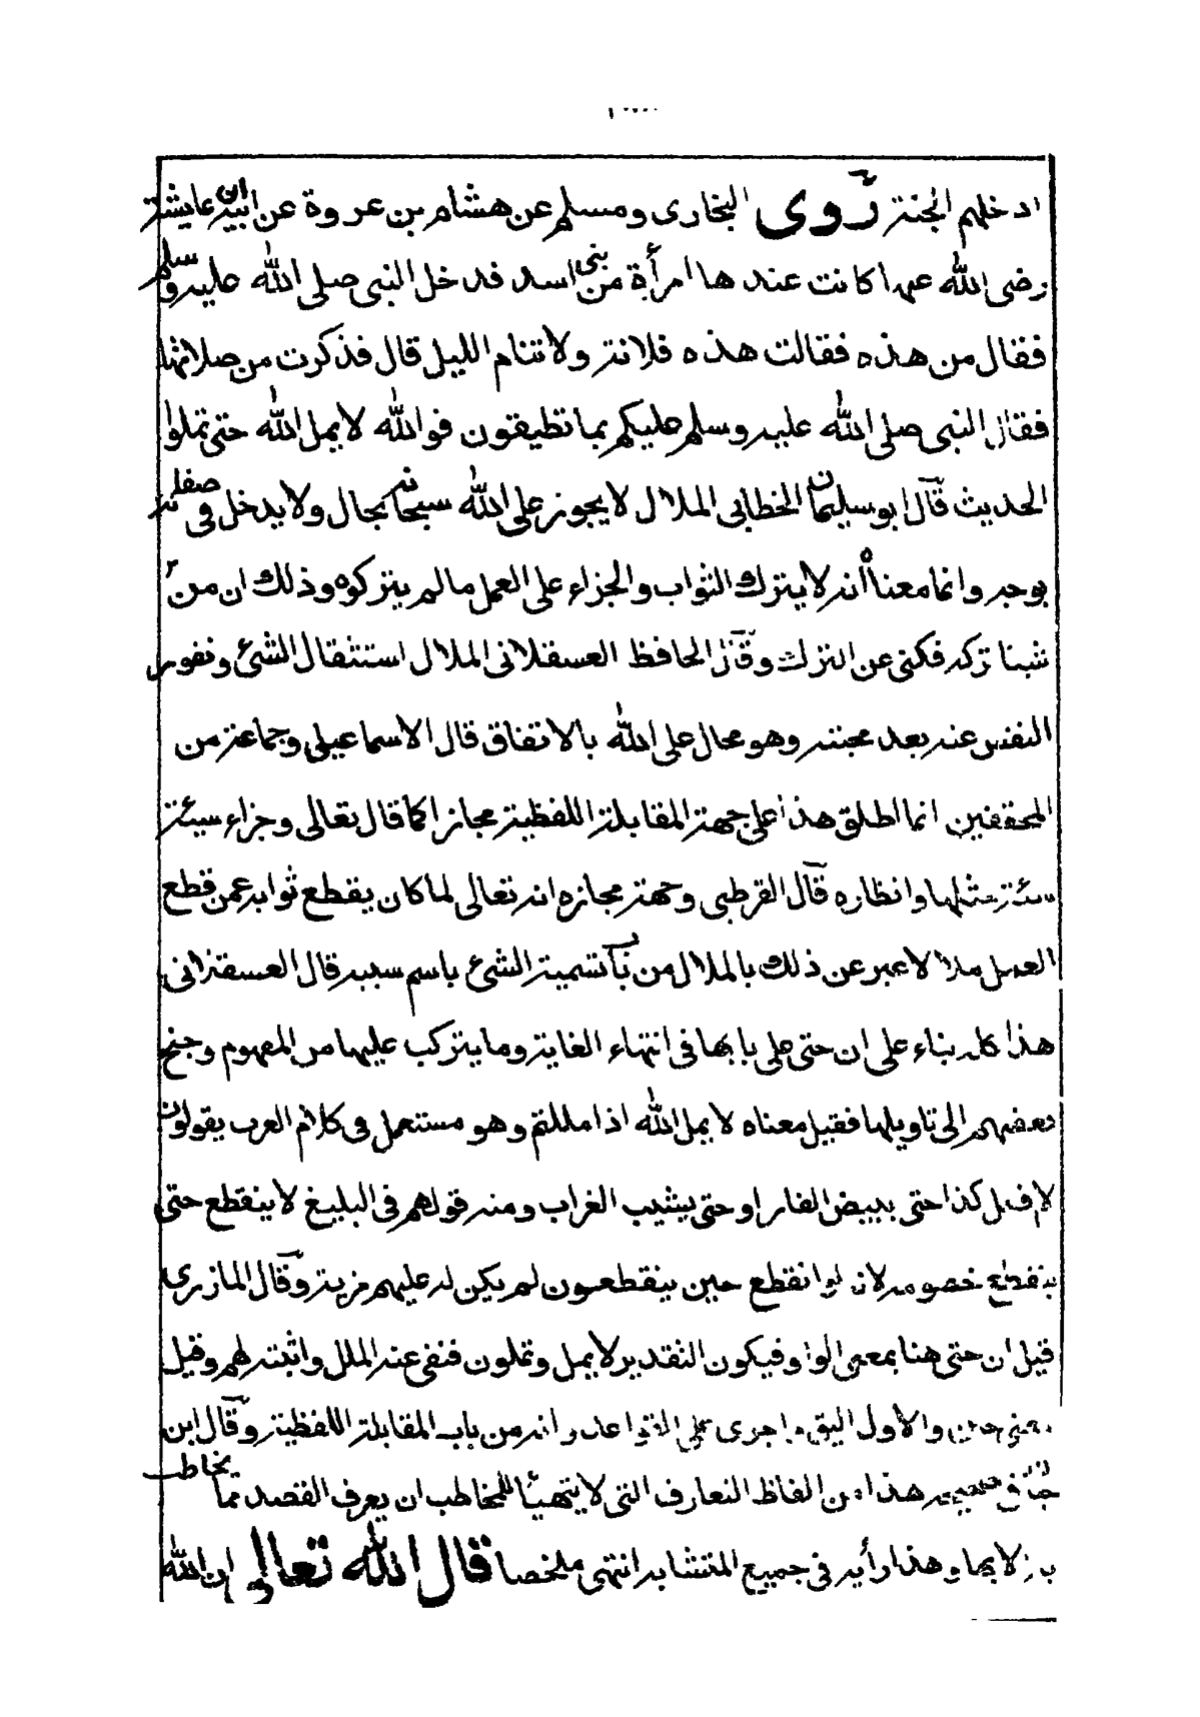 ادخلهم الجنة روى البخارى ومسلم عن هشام بن عروة عن ابيه ان عايشة
رضى الله عنها كانت عندها امرأة من بنى اسد فدخل النبى صلى الله عليه وسلم
فقال من هذه فقالت هذه فلانة ولا تنام الليل قال فذكرت من صلاتها
فقال النبى صلى الله عليه وسلم عليكم بما تطيقون فوالله لا يمل الله حتى تملوا
الحديث قال ابو سليمان الخطابى الملال لا يجوز على الله سبحانه بحال ولا يدخل فى صفاته
بوجه وانما معناه أنه لا يترك الثواب والجزاء على العمل ما لم يتركوه وذلك ان من مل
شيئا تركه فكنى عن الترك وقال الحافظ العسقلانى الملال استثقال الشئ ونفور
النفس عنه بعد محبته وهو محال على الله بالاتفاق قال الاسماعيلى وجماعة من
المحققين انما اطلق هذا على جهة المقابلة اللفظية مجازا كما قال تعالى وجزاء سيئة
سيئة مثلها وانظاره قال القرطبى وجهة مجازه انه تعالى لما كان يقطع ثوابه عمن قطع
العمل ملالا عبر عن ذلك بالملال من باب تسمية الشئ باسم سببه قال العسقلانى
هذا كله بناء على ان حتى على بابها فى انتهاء الغاية وما يتركب عليها من المفهوم وجنح
بعضهم الى تاويلها فقيل معناه لا يمل الله اذا مللتم وهو مستعمل فى كلام العرب يقولون
لا افعل كذا حتى يبيض الفار او حتى يشيب الغراب ومنه قولهم فى البليغ لا ينقطع حتى
ينقطع خصومه لانه لو انقطع حين ينقطعون لم يكن له عليهم مزية وقال المازرى
قيل ان حتى هنا بمعنى الواو فيكون التقدير لا يمل وتملون فنفى عنه الملل واثبته لهم وقيل
بمعنى حين والاول اليق واجرى على القواعد وانه من باب المقابلة اللفظية وقال ابن
حبان فى صحيحه هذا من الفاظ التعارف التى لا يتهيأ للمخاطب ان يعرف القصد مما يخاطب
به الا بها وهذا رأيه فى جميع المتشابه انتهى ملخصا قال الله تعالى ان الله